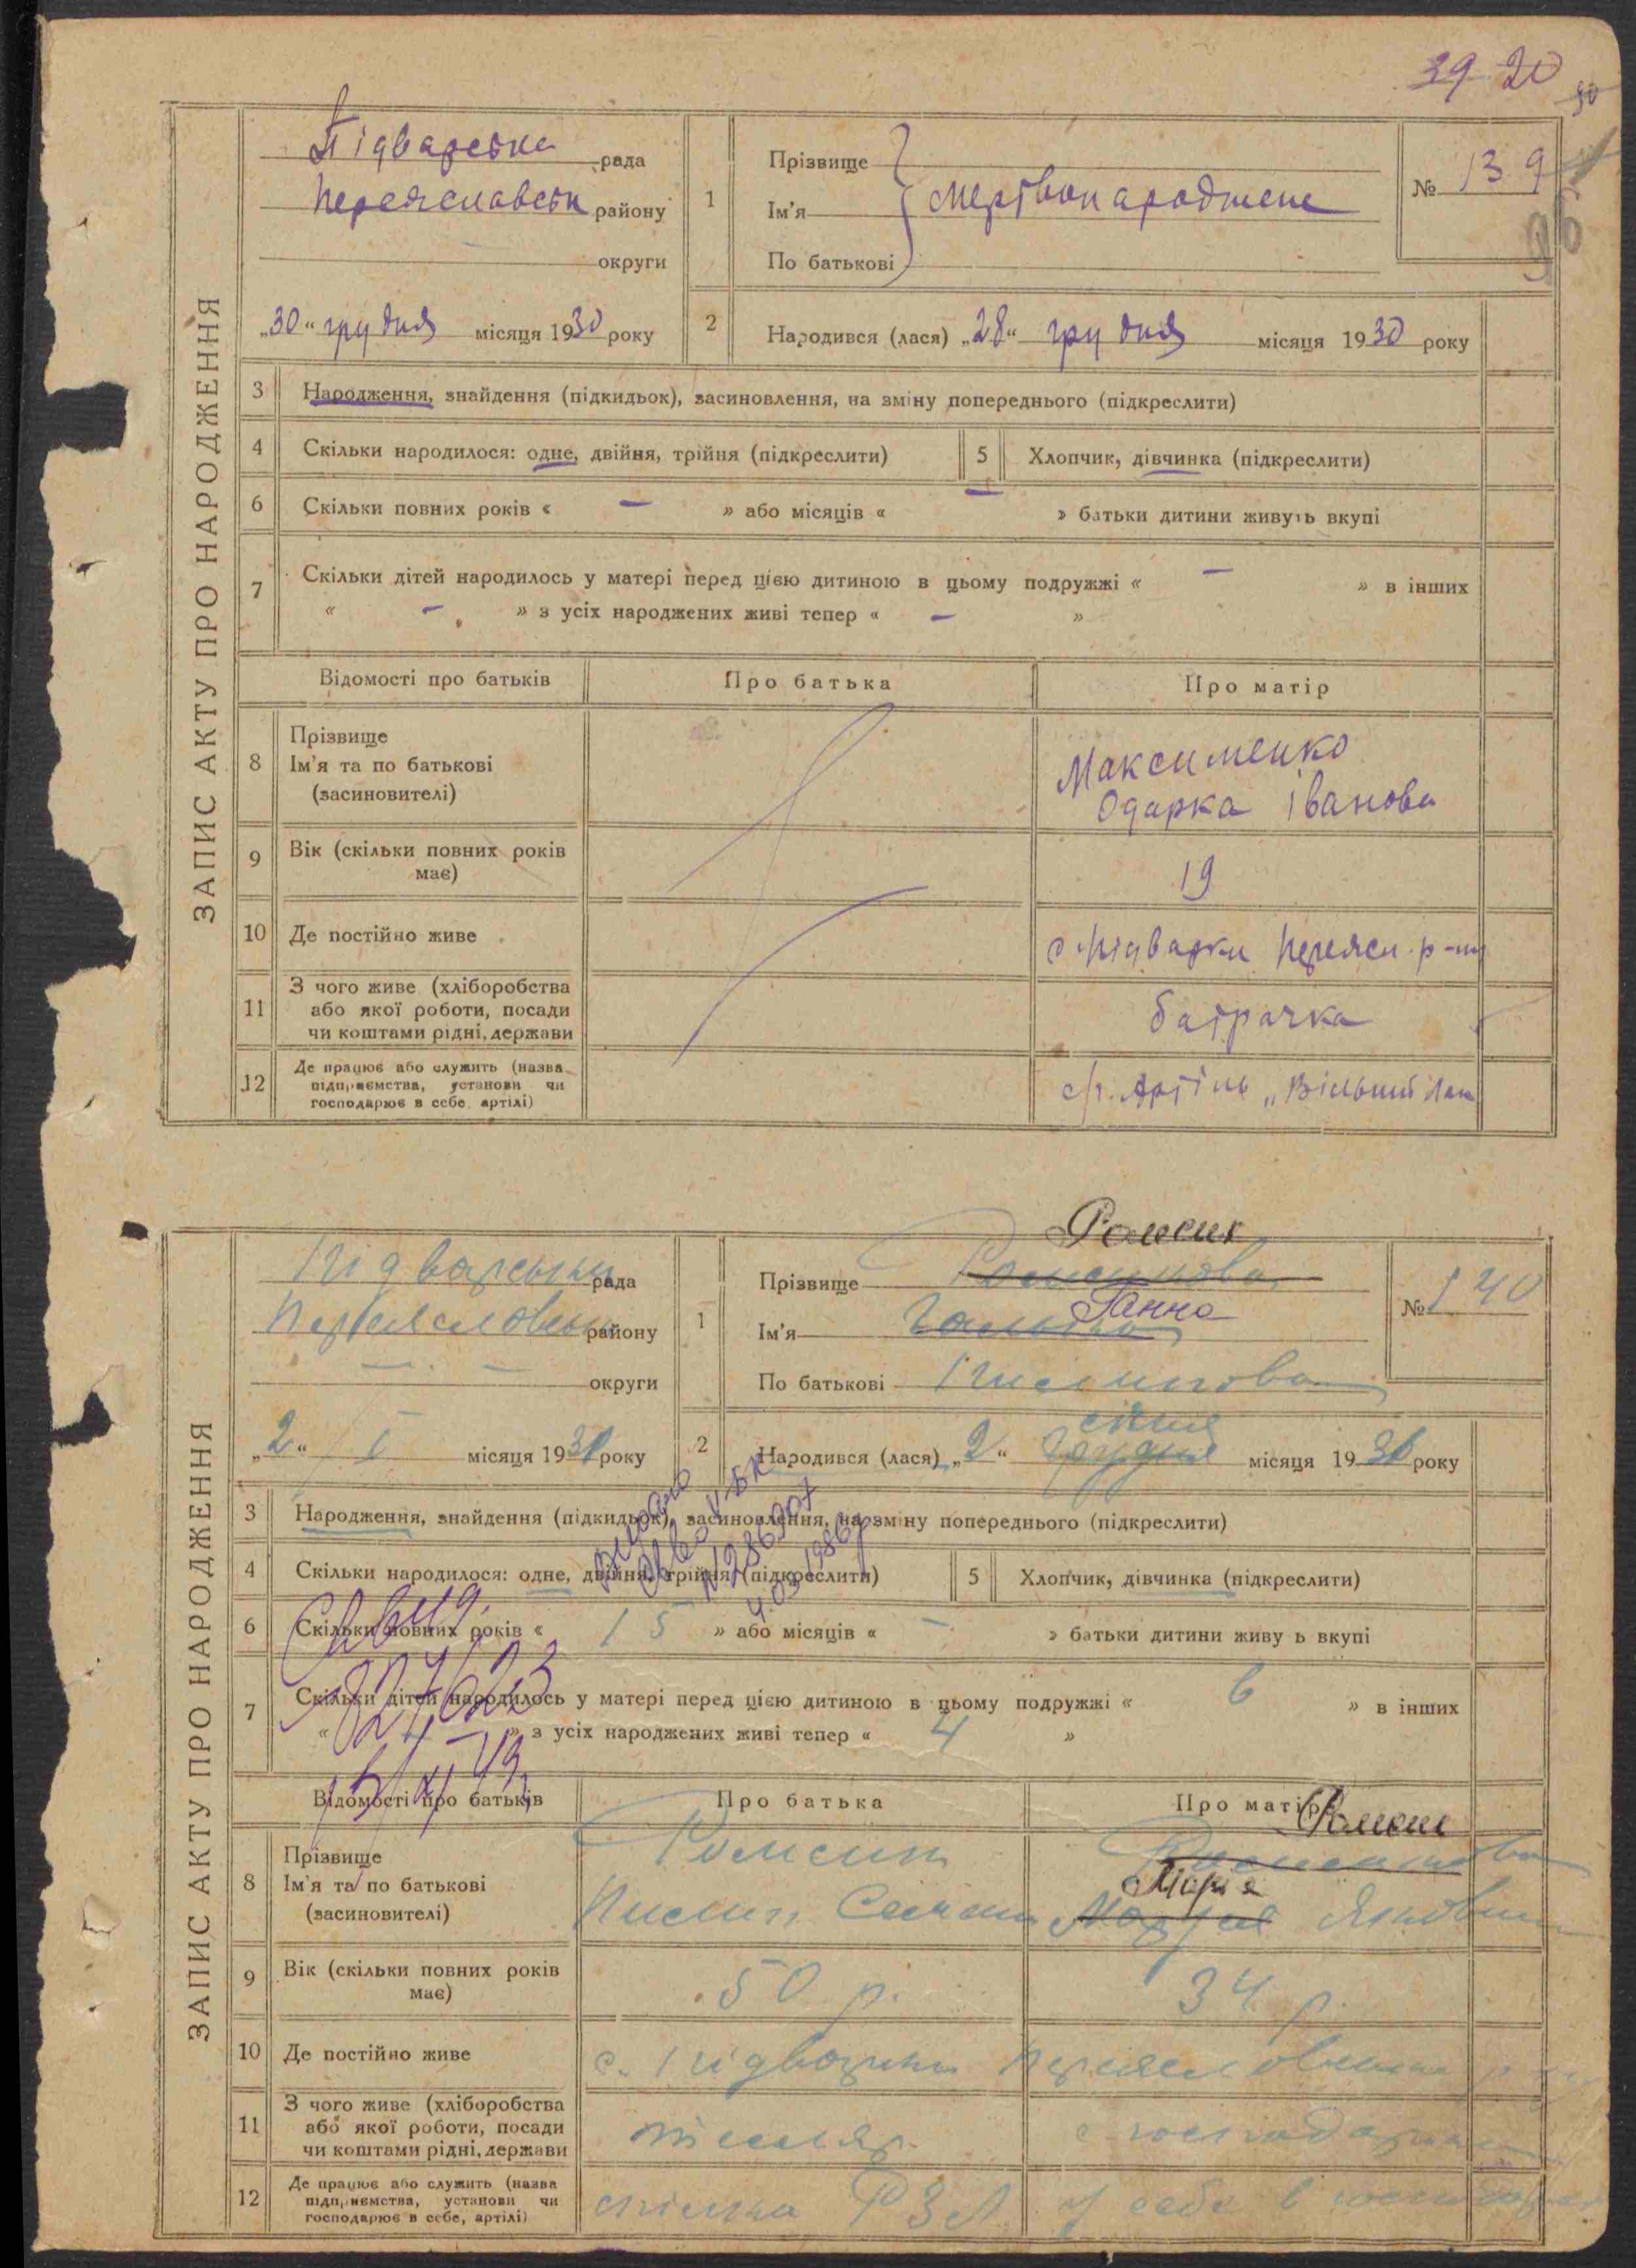 39 20
ЗАПИС АКТУ ПРО НАРОДЖЕННЯ
Підварська рада
Переяславськ району
округи
„30“ грудня місяця 1930 року
1
Прізвище
Ім'я
По батькові
мертвонароджене
№ 139
96
2
Народився (лася) „28“ грудня місяця 1930 року
3 Народження, знайдення (підкидьок), засиновлення, на зміну попереднього (підкреслити)
4 Скільки народилося: одне, двійня, трійня (підкреслити)
5 Хлопчик, дівчинка (підкреслити)
6 Скільки повних років « — » або місяців « — » батьки дитини живуть вкупі
7 Скільки дітей народилось у матері перед цією дитиною в цьому подружжі « — » в інших
« — » з усіх народжених живі тепер « — »
Відомості про батьків Про батька Про матір
8 Прізвище
Ім'я та по батькові
(засиновителі)
Максименко
Одарка Іванова
9 Вік (скільки повних років
має)
19
10 Де постійно живе
с Підварки Переясл. р-ну
11 З чого живе (хліборобства
або якої роботи, посади
чи коштами рідні, держави
батрачка
12 Де працює або служить (назва
підприємства, установи чи
господарює в себе, артілі)
с/г. Артіль „Вільний Лан
ЗАПИС АКТУ ПРО НАРОДЖЕННЯ
Підварська рада
Переяславськ району
— — округи
„2“ I місяця 1931 року
1
Ромсик
Прізвище
Ганна
Ім'я
По батькові Пилипова
№ 140
2
січня
Народився (лася) „2“ грудня місяця 1931 року
3 Народження, знайдення (підкидьок), засиновлення, на зміну попереднього (підкреслити)
4 Скільки народилося: одне, двійня, трійня (підкреслити)
5 Хлопчик, дівчинка (підкреслити)
6 Скільки повних років « 15 » або місяців « — » батьки дитини живу ь вкупі
7 Скільки дітей народилось у матері перед цією дитиною в цьому подружжі « 6 » в інших
« » з усіх народжених живі тепер « 4 »
видано
827623
Відомості про батьків Про батька Про матір
8 Прізвище
Ім'я та по батькові
(засиновителі)
Ромсик
Пилип
Ромсик
Марія
9 Вік (скільки повних років
має)
50 р.
34 р.
10 Де постійно живе
с. Підварки
11 З чого живе (хліборобства
або якої роботи, посади
чи коштами рідні, держави
тесляр
12 Де працює або служить (назва
підприємства, установи чи
господарює в себе, артілі)
спілка РЗЛ
У себе в